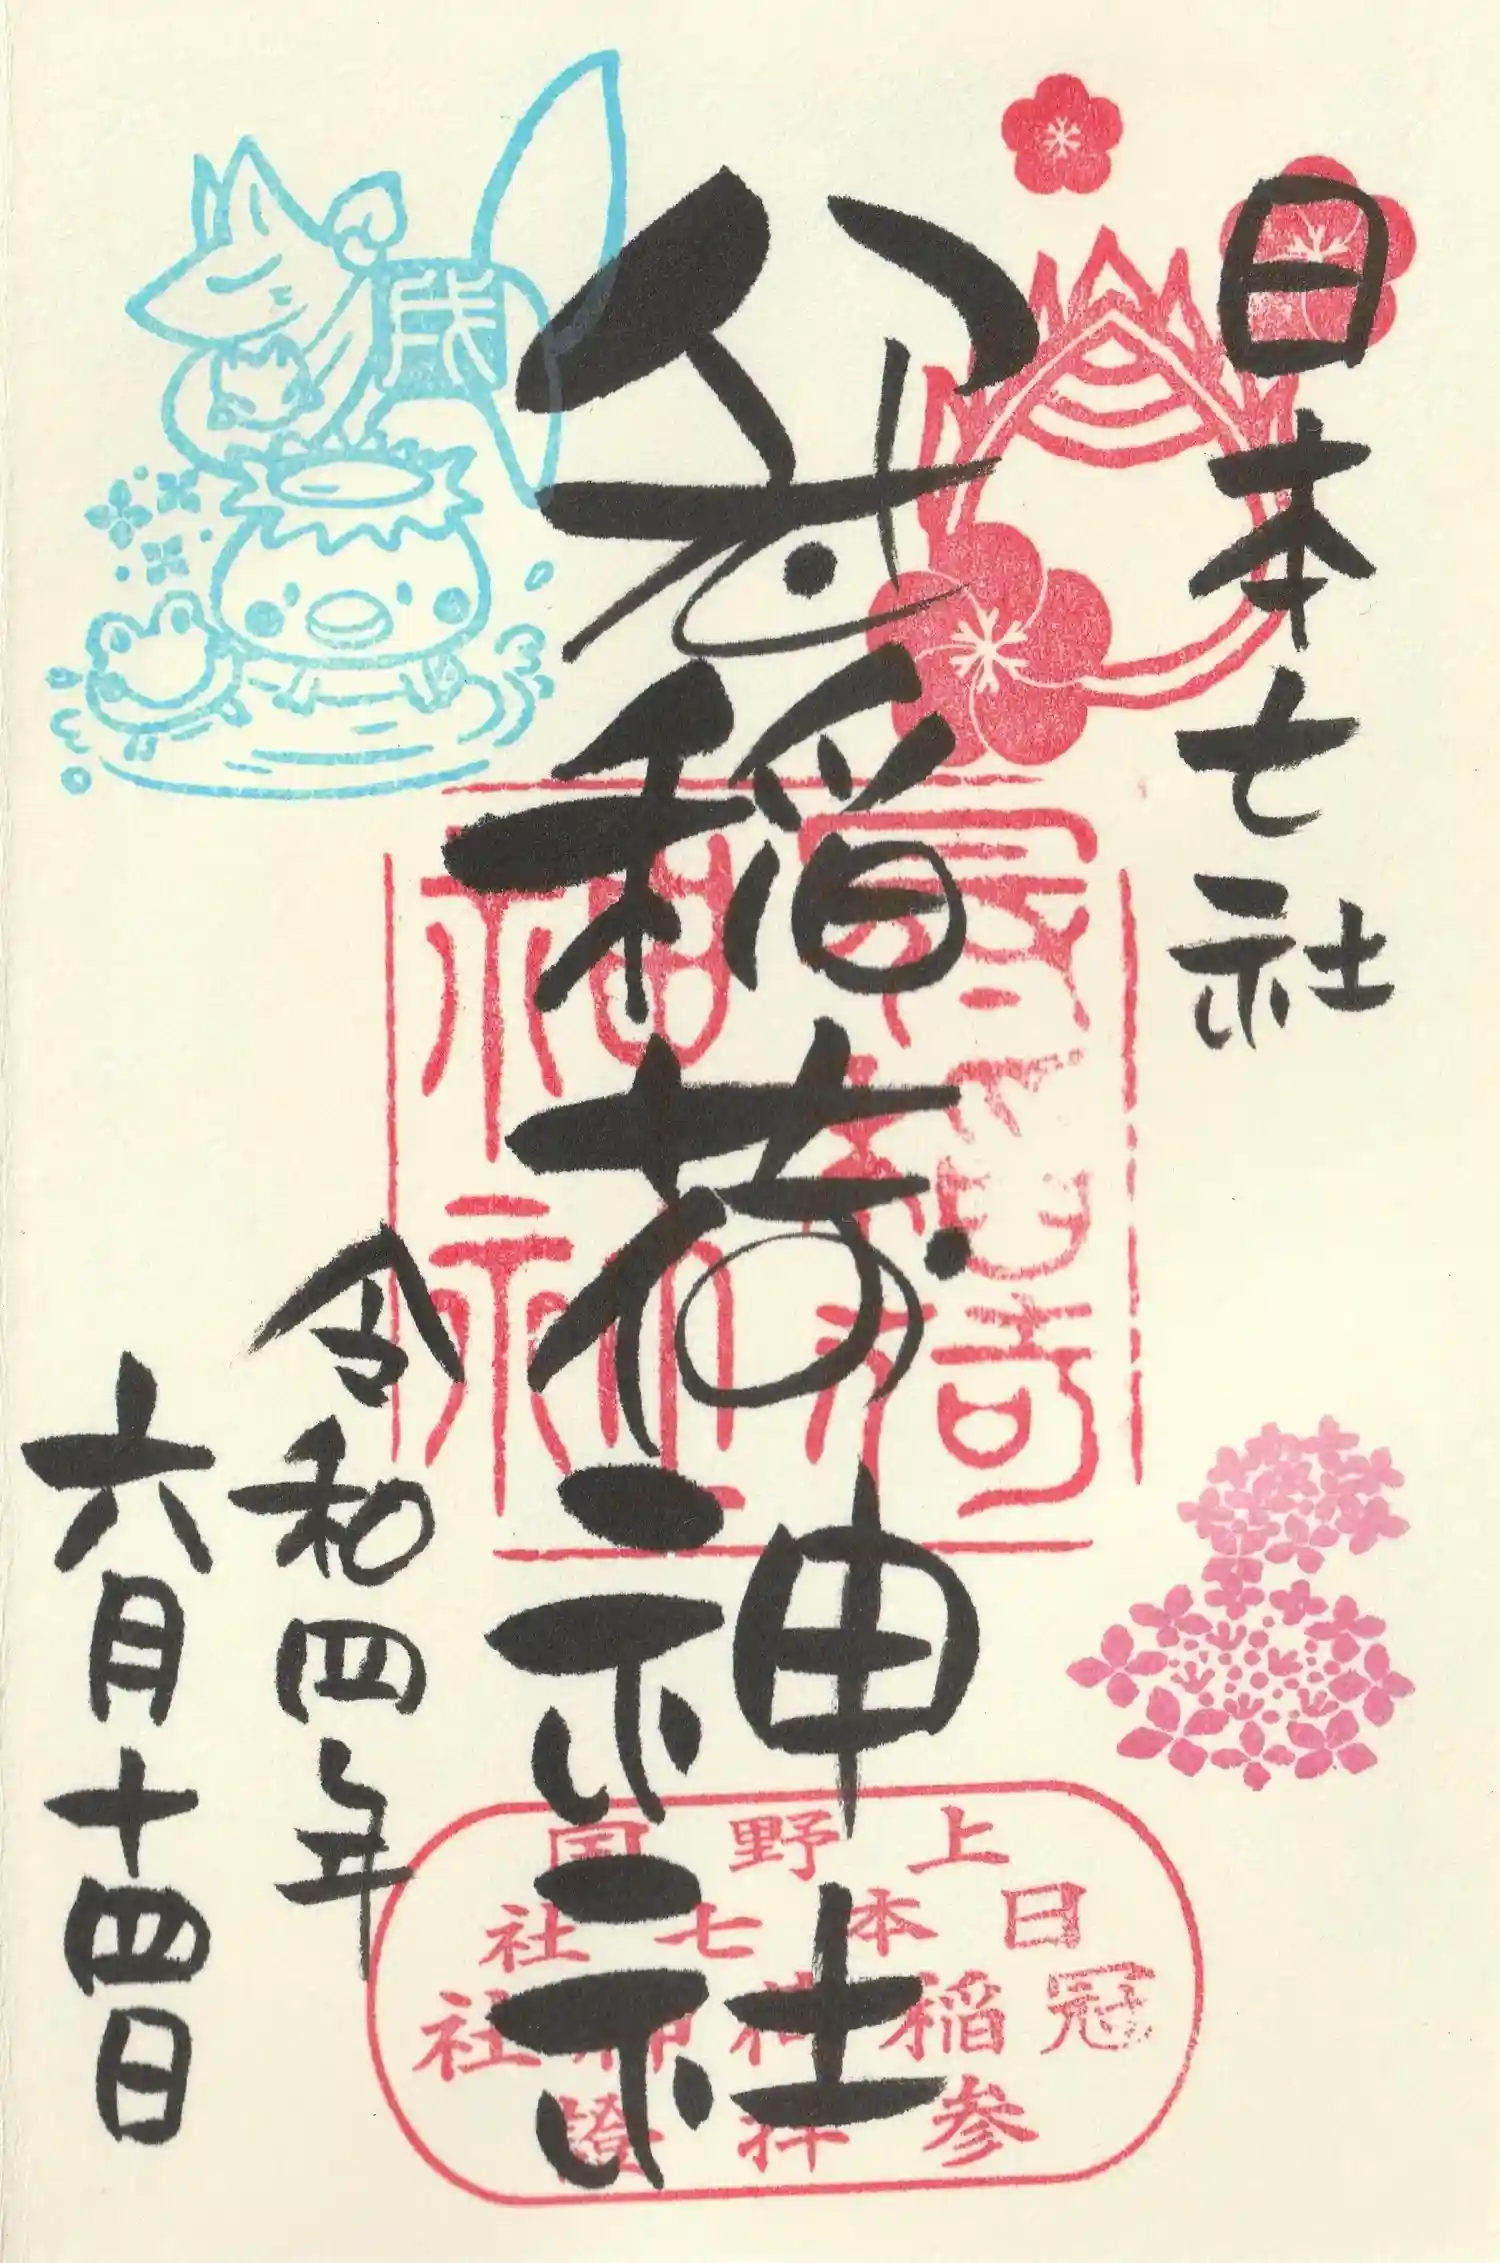 日本七社
冠稲荷神社
令和四年
六月十四日
冠稲荷
神社
上野国
日本七社
冠稲荷神社
参拝證